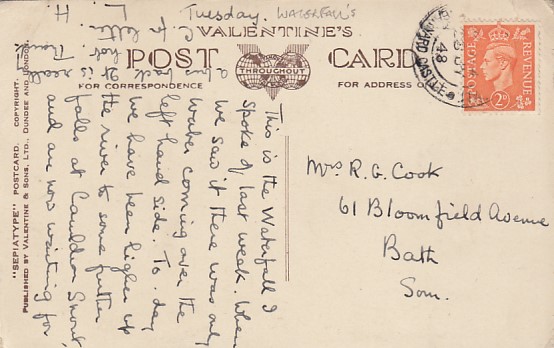 Tuesday. WATERFALL'S
VALENTINE'S
POST CARD
THROUGHOUT
FOR CORRESPONDENCE
FOR ADDRESS ON
"SEPIATYPE" POSTCARD. COPYRIGHT.
PUBLISHED BY VALENTINE & SONS, LTD., DUNDEE AND LONDON.
This is the Waterfall I
spoke of last week. When
we saw it there was only
water coming over the
left hand side. To-day
we have been higher up
the river to some further
falls at Cauldron Snout,
and are now waiting for
a bus back. It is really
hot.
for letter.
L.
H.
Mrs R. G. Cook
61 Bloomfield Avenue
Bath
Som.
48
POSTAGE
REVENUE
2D